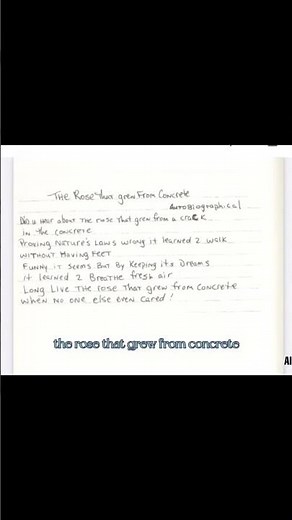 The Rose that grew From Concrete
Autobiographical
Did u hear about the rose that grew from a crack
in the concrete
Proving nature's laws wrong it learned 2 walk
without moving feet
Funny it seems But By Keeping its Dreams
it learned 2 Breathe fresh air
Long Live The rose that grew from concrete
when no one else even cared!
the rose that grew from concrete
Al